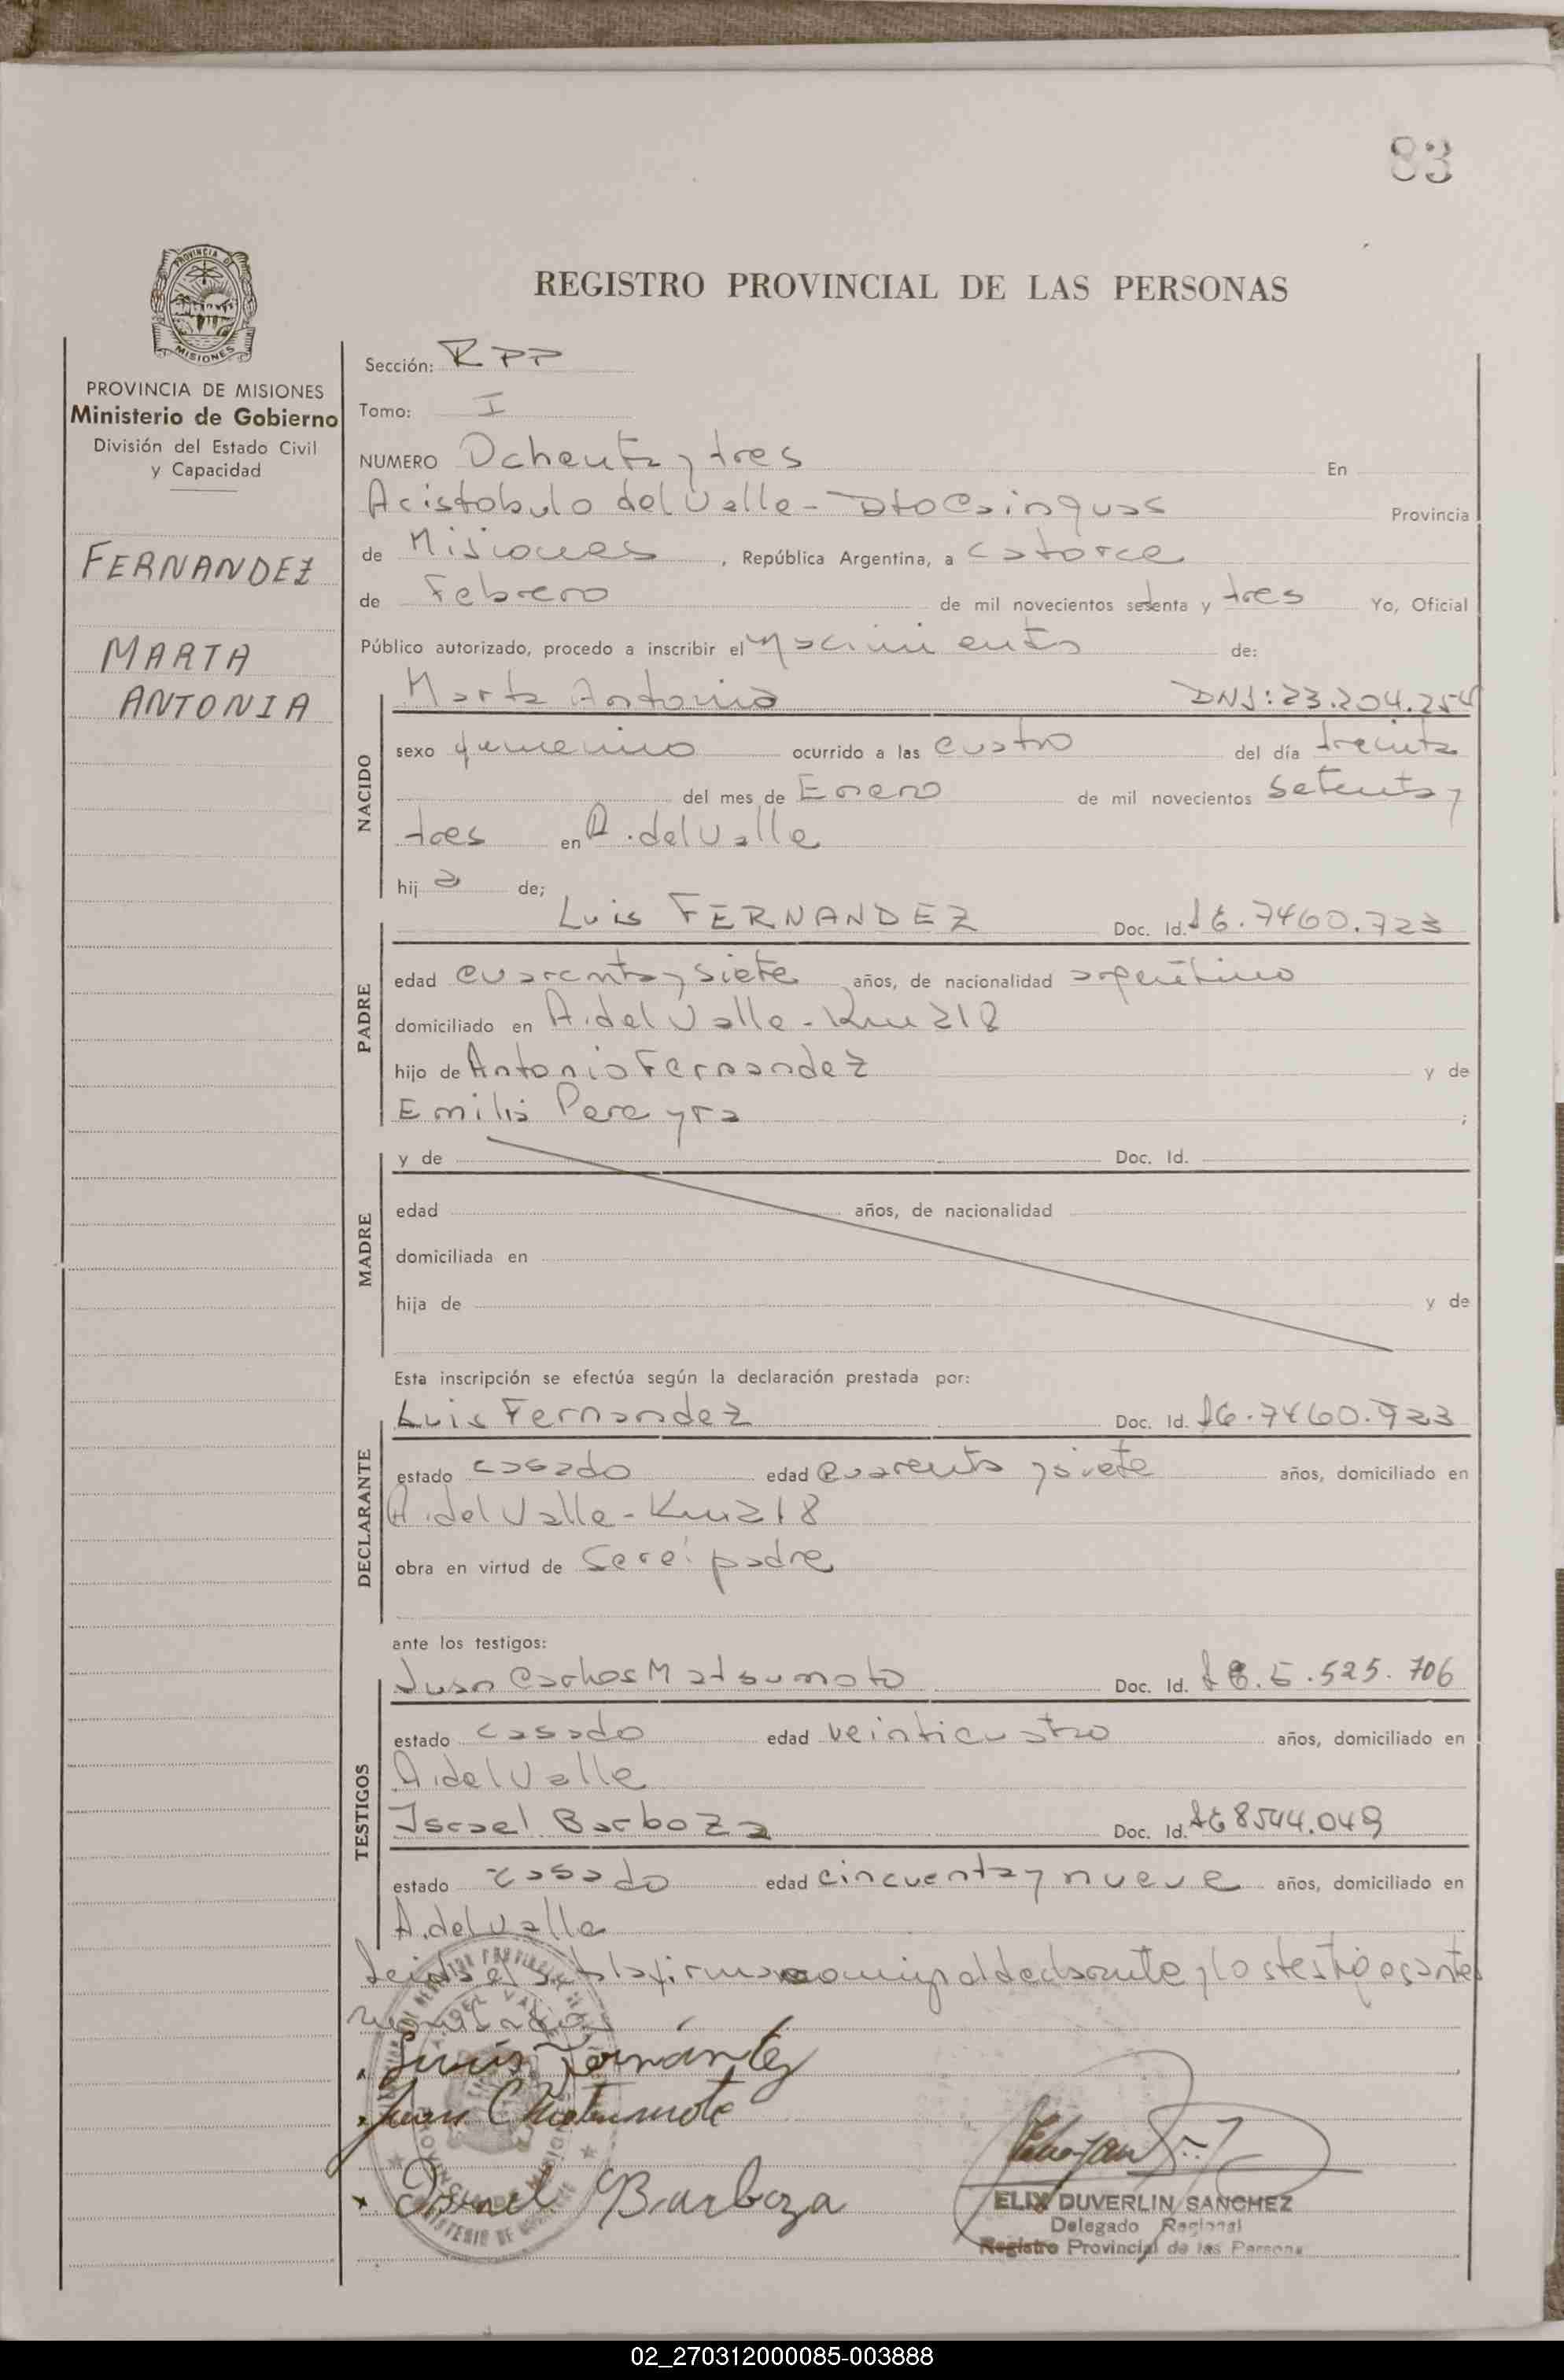 83
PROVINCIA DE
MISIONES
PROVINCIA DE MISIONES
Ministerio de Gobierno
División del Estado Civil
y Capacidad
FERNANDEZ
MARTA
ANTONIA
REGISTRO PROVINCIAL DE LAS PERSONAS
Sección: RPP
Tomo: I
NUMERO Ochenta y tres En
Aristobulo del Valle - Dto Cainguas Provincia
de Misiones, República Argentina, a catorce
de Febrero de mil novecientos setenta y tres Yo, Oficial
Público autorizado, procedo a inscribir el Nacimiento de:
NACIDO
Marta Antonia DNI: 23.204.254
sexo femenino ocurrido a las cuatro del día treinta
del mes de Enero de mil novecientos setenta y
tres en A. del Valle
hij a de;
PADRE
Luis FERNANDEZ Doc. Id. 7460.723
edad cuarenta y siete años, de nacionalidad argentino
domiciliado en A. del Valle - Km 218
hijo de Antonio Fernandez y de
Emilia Pereyra ;
MADRE
y de Doc. Id.
edad años, de nacionalidad
domiciliada en
hija de y de
Esta inscripción se efectúa según la declaración prestada por:
DECLARANTE
Luis Fernandez Doc. Id. 7460.923
estado casado edad cuarenta y siete años, domiciliado en
A. del Valle - Km 218
obra en virtud de ser el padre
ante los testigos:
TESTIGOS
Juan Carlos Matsumoto Doc. Id. 5.525.706
estado casado edad veinticuatro años, domiciliado en
A. del Valle
Israel Barboza Doc. Id. 8544.049
estado casado edad cincuenta y nueve años, domiciliado en
A. del Valle
Leida el acta la firman conmigo el declarante y los testigos antes
Luis Fernández
Juan C Matsumoto
Israel Barboza
ELIX DUVERLIN SANCHEZ
Delegado Regional
Registro Provincial de las Personas
02_270312000085-003888